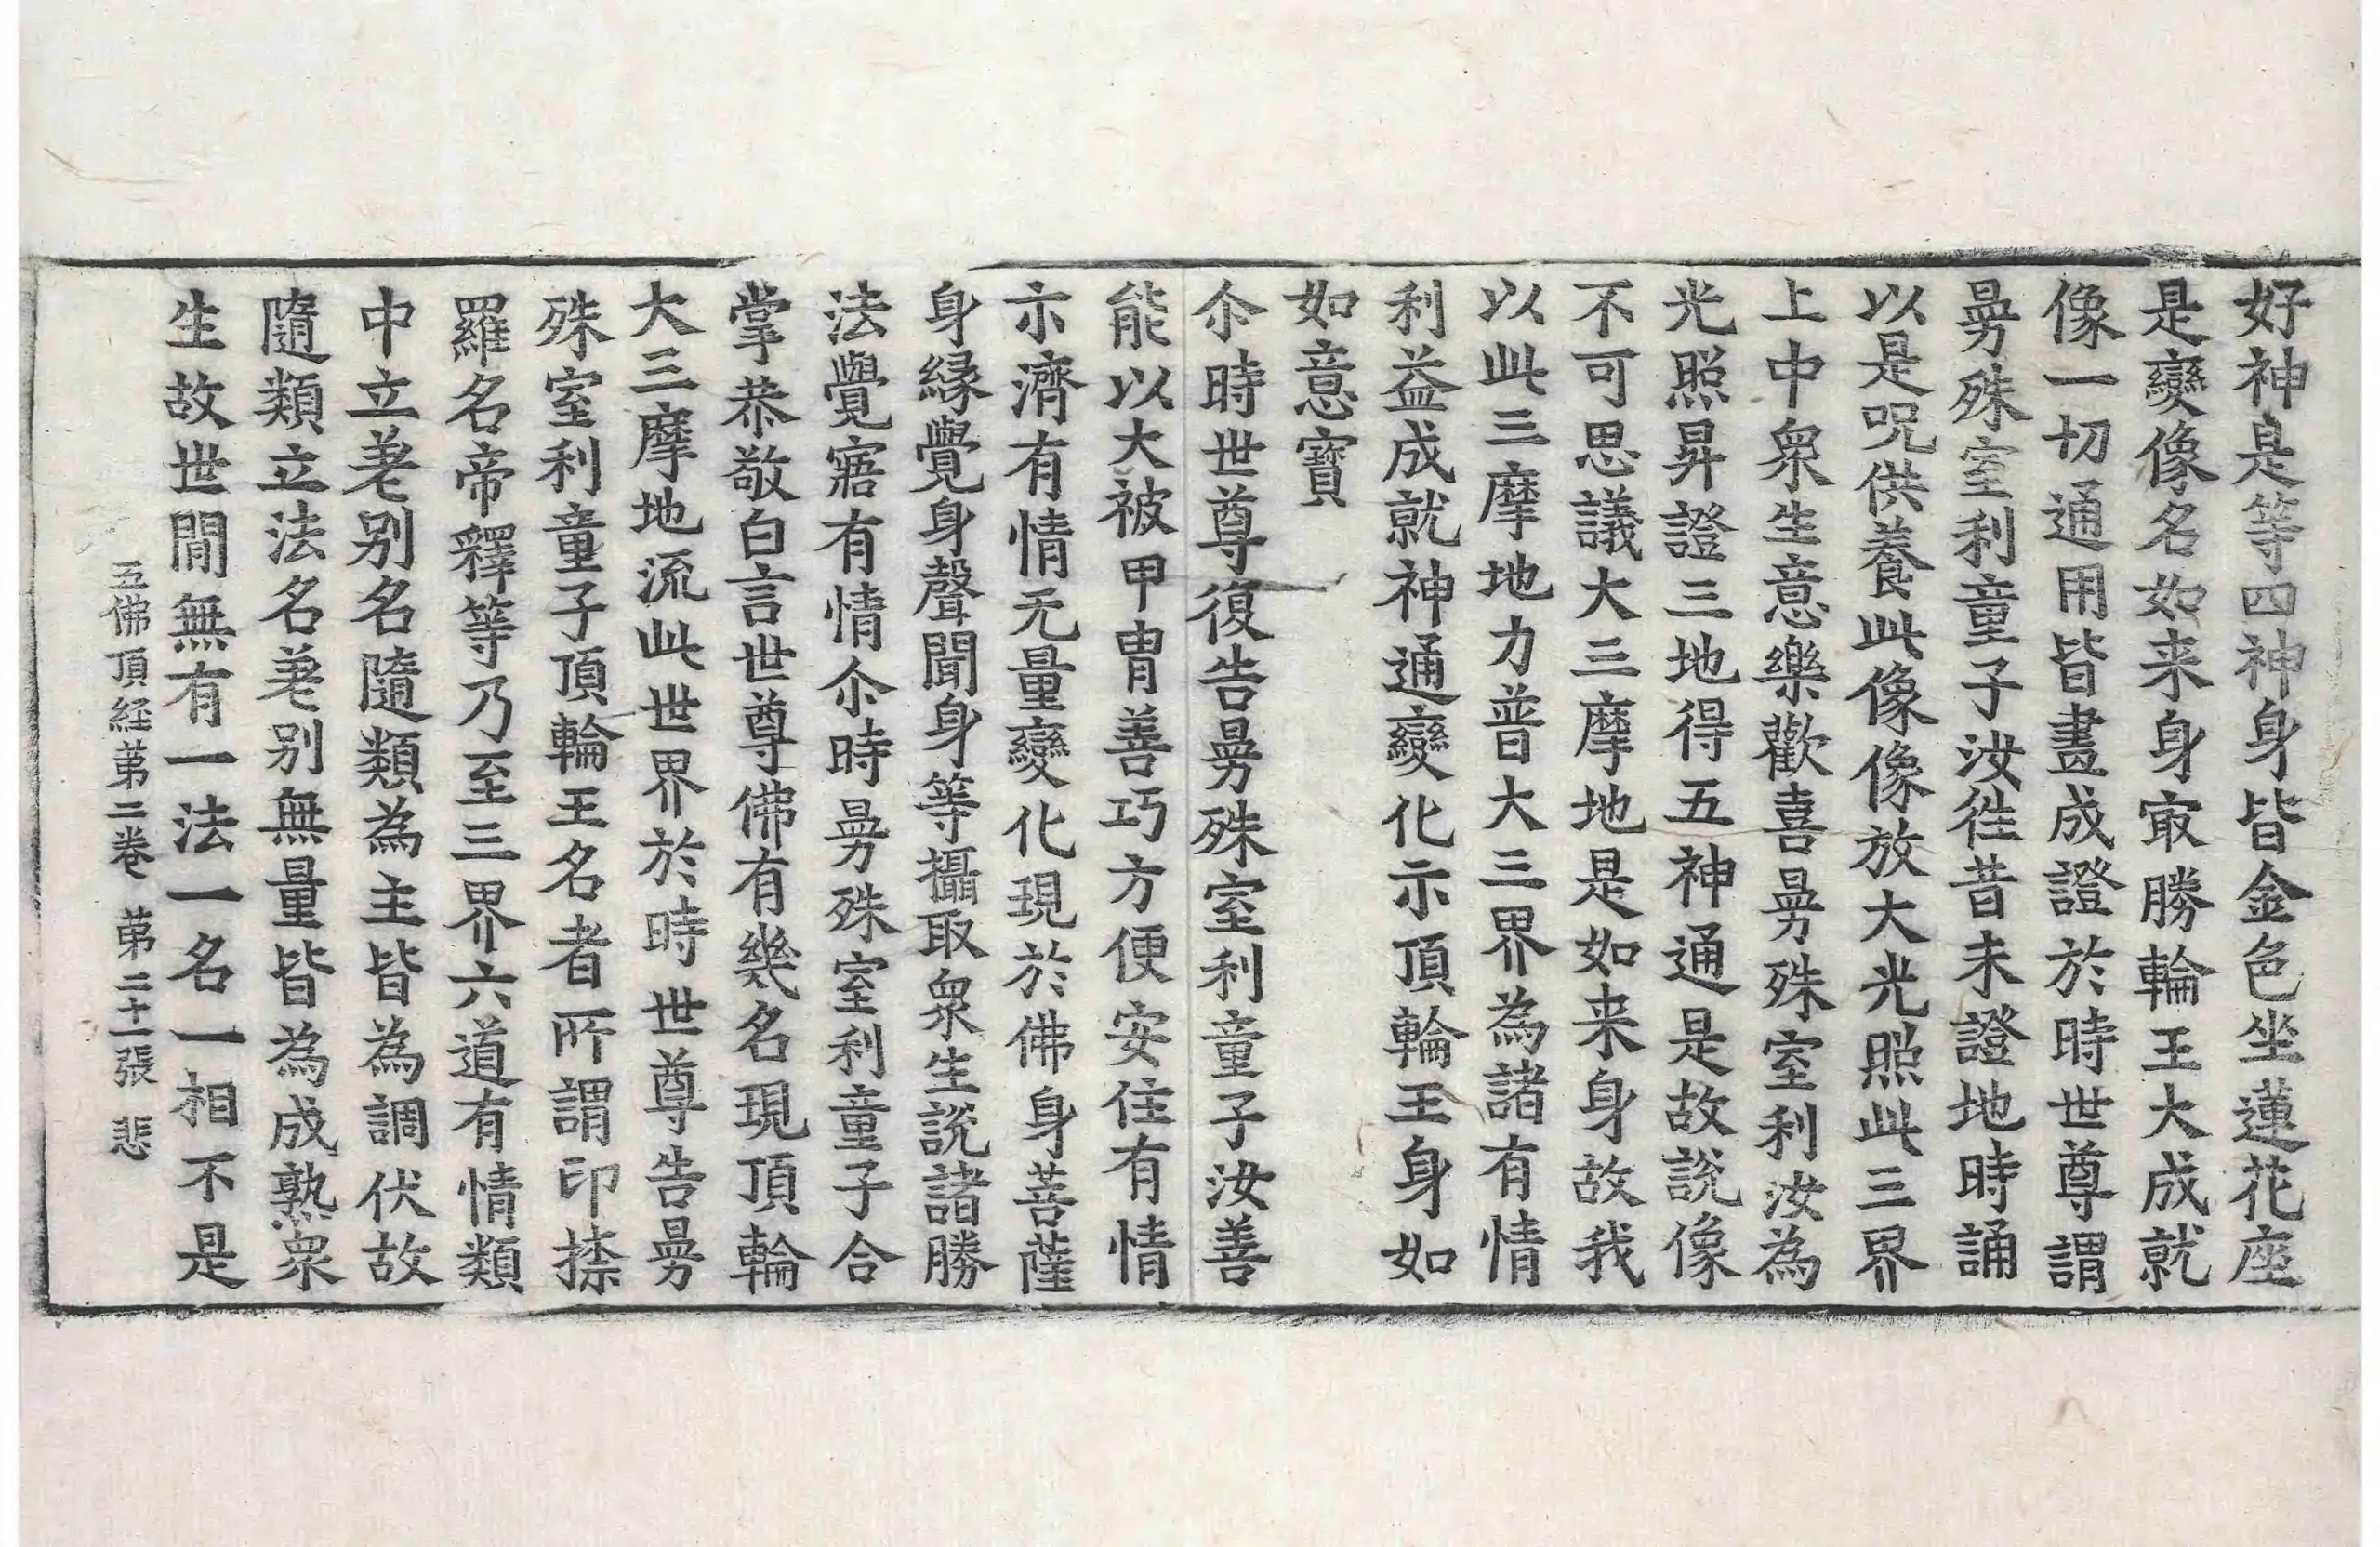 好神是等四神身皆金色坐蓮花座
是變像名如来身㝡勝輪王大成就
像一切通用皆盡成證於時世尊謂
曼殊室利童子汝徃昔未證地時誦
以是呪供養此像像放大光照此三界
上中衆生意樂歡喜曼殊室利汝為
光照昇證三地得五神通是故說像
不可思議大三摩地是如来身故我
以此三摩地力普大三界為諸有情
利益成就神通變化示頂輪王身如
如意寶
尒時世尊復告曼殊室利童子汝善
能以大被甲胄善巧方便安住有情
示濟有情无量變化現於佛身菩薩
身縁覺身聲聞身等攝取衆生說諸勝
法覺寤有情尒時曼殊室利童子合
掌恭敬白言世尊佛有幾名現頂輪
大三摩地流此世界於時世尊告曼
殊室利童子頂輪王名者所謂印捺
羅名帝釋等乃至三界六道有情類
中立差别名隨類為主皆為調伏故
隨類立法名差别無量皆為成熟衆
生故世間無有一法一名一相不是
五佛頂経苐二卷 苐二十一張 悲